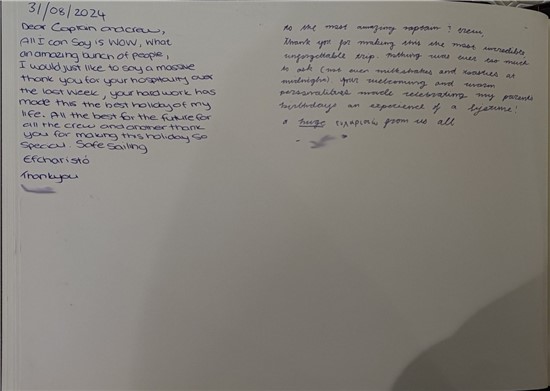 31/08/2024
Dear Captain and crew,
All I can say is WOW, what
an amazing bunch of people,
I would just like to say a massive
thank you for your hospitality over
the last week, your hard work has
made this the best holiday of my
life. All the best for the future for
all the crew and another thank
you for making this holiday so
special. Safe Sailing
Efcharistó
Thankyou
To the most amazing captain & crew,
thank you for making this the most incredible,
unforgettable trip. Nothing was ever too much
to ask (not even milkshakes and toasties at
midnight). your welcoming and warm
personalities made celebrating my parents
birthdays an experience of a lifetime!
a huge ευχαριστώ from us all